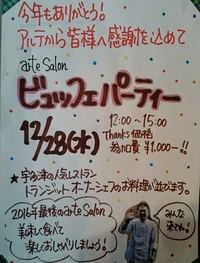 今年もありがとう!
アルテから皆様へ感謝を込めて
arte Salon
ビュッフェパーティー
12/28(水)
12:00~15:00
Thanks価格
参加費¥1,000-!!
★宇多津の人気レストラン
トランジットオーナーシェフのお料理が並びます。
2016年最後のarte Salon
美味しく食べて
楽しくおしゃべりしましょう!
みんな
来てね!